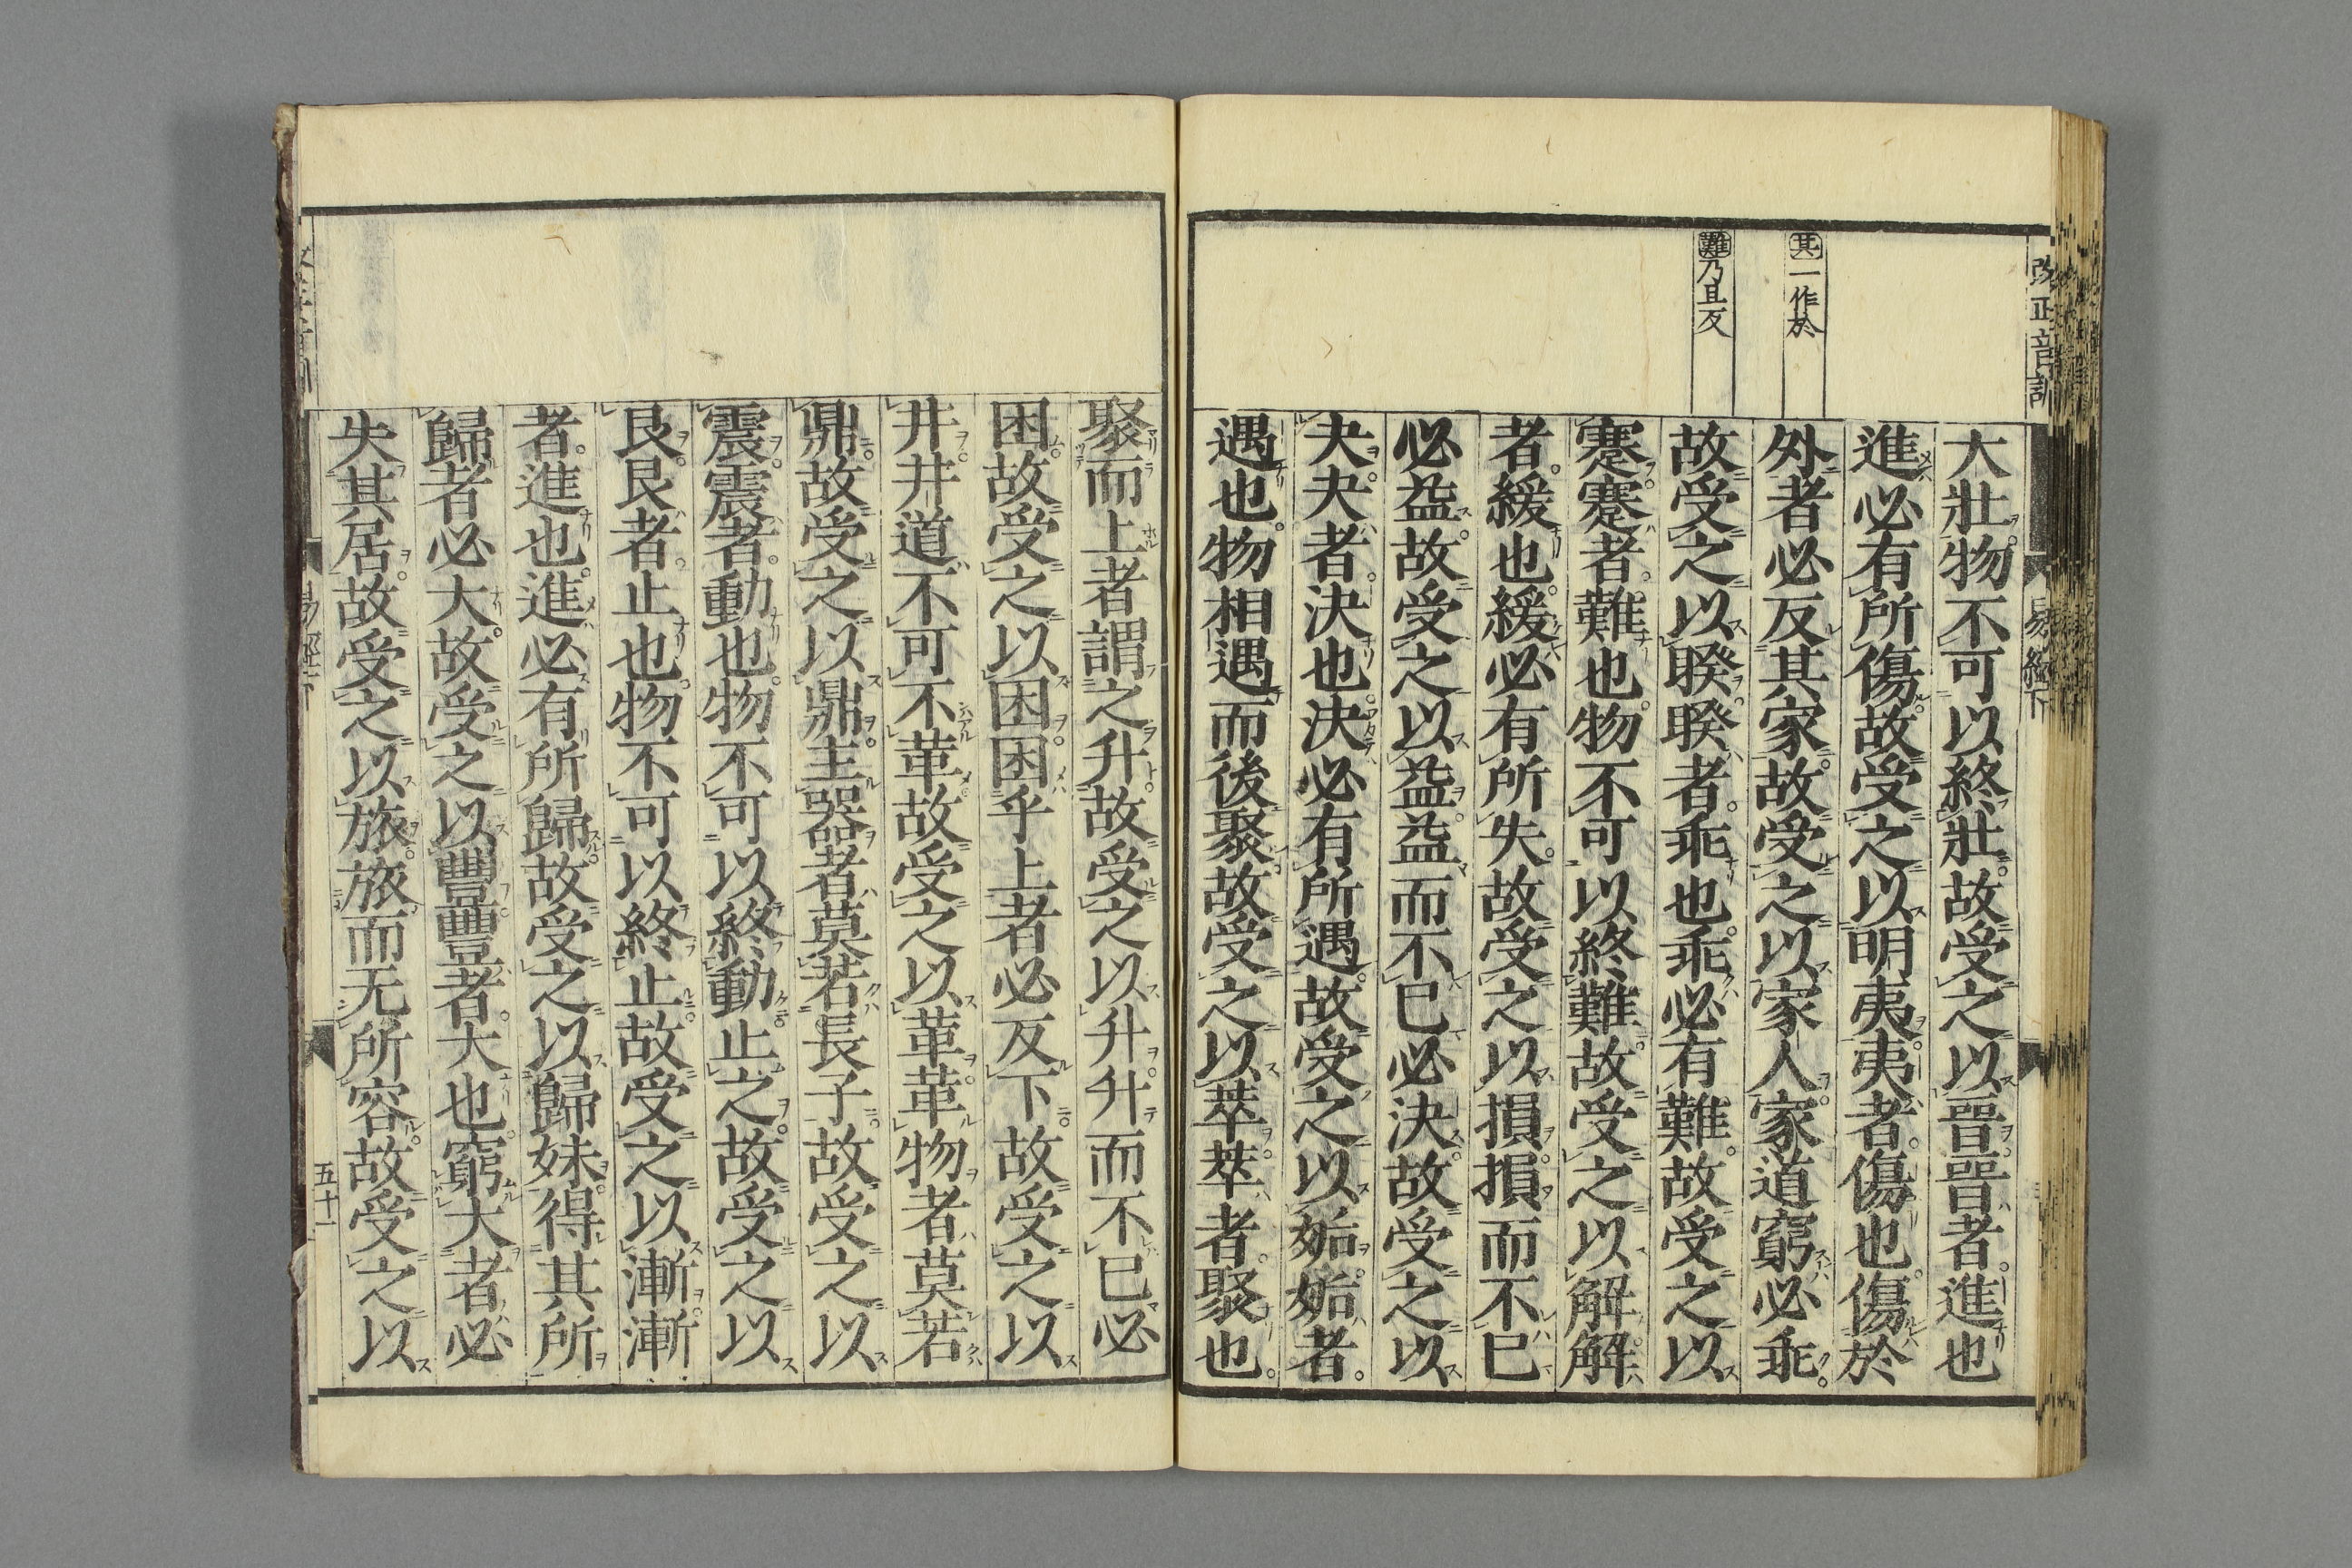 改正音訓
易經下
其一作於
難乃且反
大壯物不可以終壯故受之以晉晉者進也
進必有所傷故受之以明夷夷者傷也傷於
外者必反其家故受之以家人家道窮必乖
故受之以睽睽者乖也乖必有難故受之以
蹇蹇者難也物不可以終難故受之以解解
者緩也緩必有所失故受之以損損而不已
必益故受之以益益而不已必決故受之以
夬夬者決也決必有所遇故受之以姤姤者
遇也物相遇而後聚故受之以萃萃者聚也
聚而上者謂之升故受之以升升而不已必
困故受之以困困乎上者必反下故受之以
井井道不可不革故受之以革革物者莫若
鼎故受之以鼎主器者莫若長子故受之以
震震者動也物不可以終動止之故受之以
艮艮者止也物不可以終止故受之以漸漸
者進也進必有所歸故受之以歸妹得其所
歸者必大故受之以豐豐者大也窮大者必
失其居故受之以旅旅而无所容故受之以
易經下
五十一